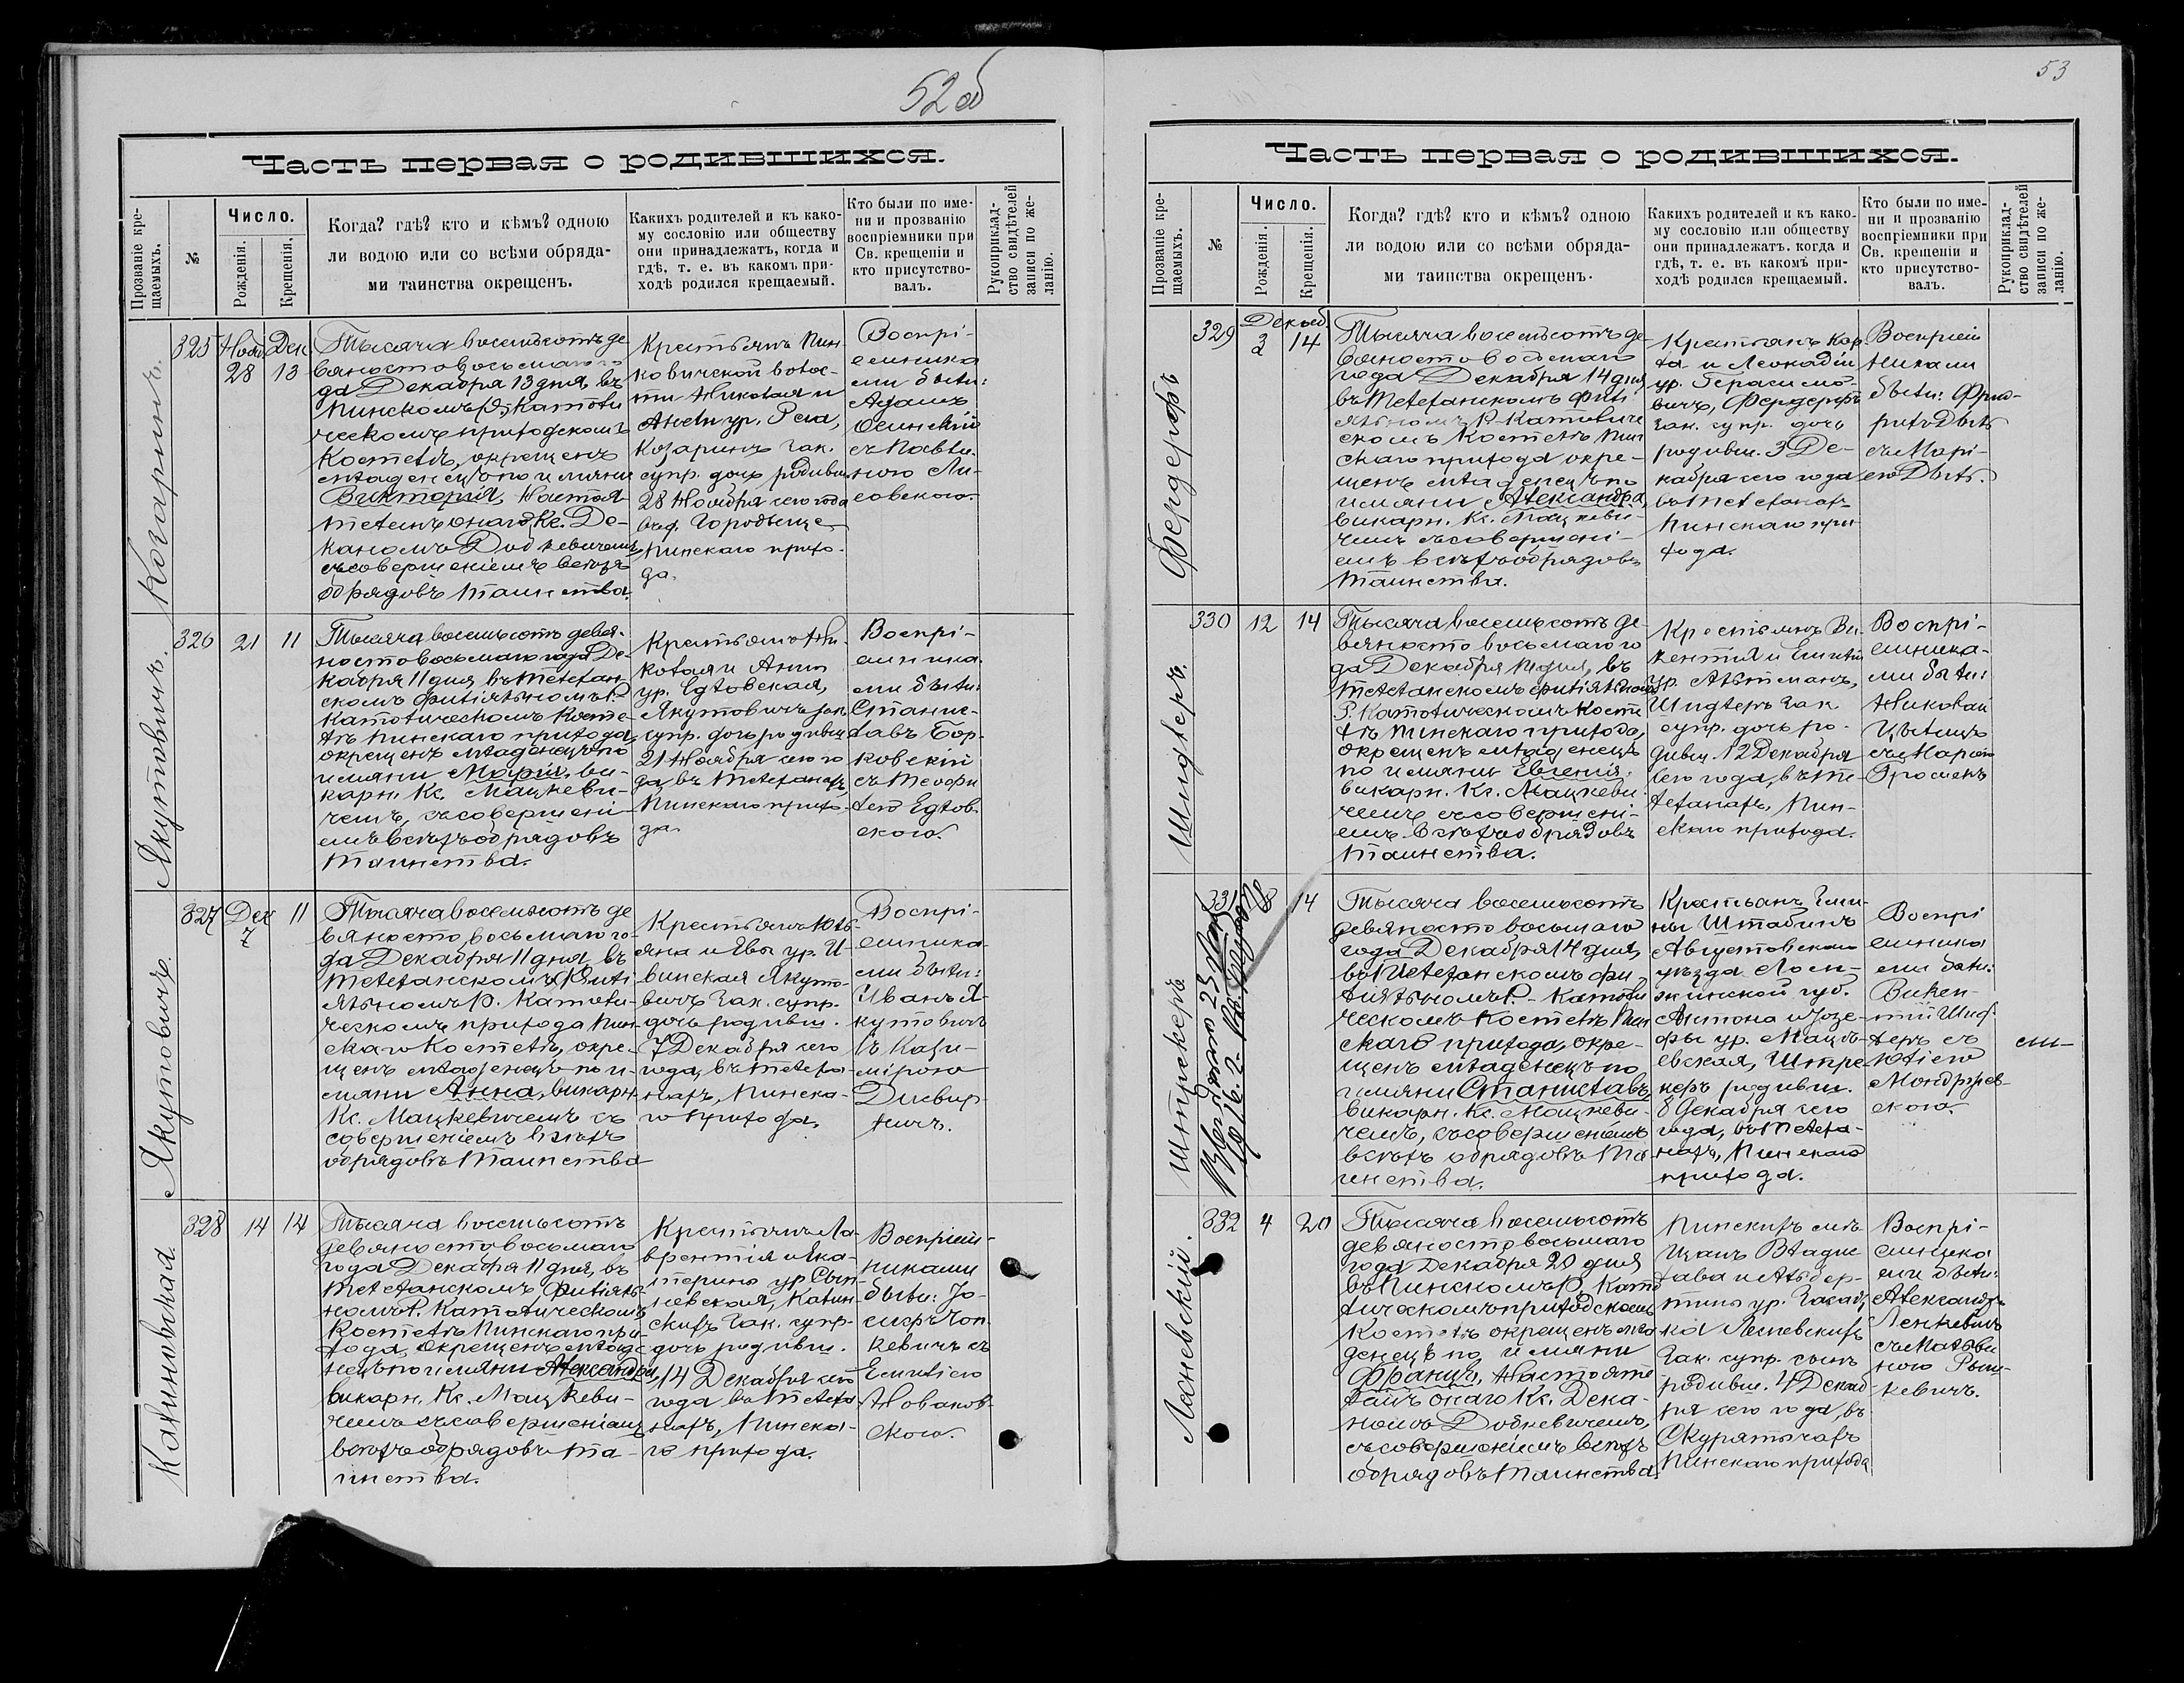 52об
Часть первая о родившихся.
Прозваніе кре-
щаемыхъ.
№
Число.
Рожденія.
Крещенія.
Когда? гдѣ? кто и кѣмъ? одною
ли водою или со всѣми обряда-
ми таинства окрещенъ.
Какихъ родителей и къ како-
му сословію или обществу
они принадлежатъ, когда и
гдѣ, т. е. въ какомъ при-
ходѣ родился крещаемый.
Кто были по име-
ни и прозванію
воспріемники при
Св. крещеніи и
кто присутство-
валъ.
Рукоприклад-
ство свидѣтелей
записи по же-
ланію.
Козаринъ.
325
Нояб
28
Дек
13
Тысяча восемьсотъ де
вяносто восьмаго го
да Декабря 13 дня, въ
Пинскомъ Р. Католи
ческомъ приходскомъ
Костелѣ, окрещенъ
младенецъ по имяни
Викторія, Настоя-
телемъ онаго Кс. Де-
каномъ
съ совершеніемъ всѣхъ
обрядовъ таинства.
Крестьянъ Пин-
ковичской волос-
ти Николая и
ур.
Козаринъ зак.
супр. дочь родивш.
28 Ноября сего года
въ д. Городыще
Пинскаго прихо-
да.
Воспрі-
емника
ми были:
Адамъ
Осинскій
съ Павли-
ною Ли-
совскою.
Якутовичъ.
326
21
11
Тысяча восемьсотъ девя-
носто восьмаго года Де-
кабря 11 дня въ Телехан-
скомъ филіяльномъ Р.
Католическомъ Косте-
лѣ Пинскаго прихода,
окрещенъ младенецъ по
имяни Марія, ви-
карн. Кс. Мацкеви-
чемъ, съ совершені-
емъ всѣхъ обрядовъ
таинства.
Крестьянъ Ни-
колая и Анны
ур. Едловская,
Якутовичъ зак.
супр. дочь родивш.
21 Ноября сего го
да, въ Телеханахъ,
Пинскаго прихо-
да.
Воспрі-
емника-
ми были:
Станис-
лавъ Бор-
ковскій
съ Теофи
лею Едлов-
скою.
Якутовичъ.
327
Дек
7
11
Тысяча восемьсотъ де
вяносто восьмаго го-
да Декабря 11 дня, въ
Телеханскомъ Филі
яльномъ Р. Католи-
ческомъ прихода Пин-
скаго Костелѣ, окре-
щенъ младенецъ по и-
мяни Анна, викарн.
Кс. Мацкевичемъ съ
совершеніемъ всѣхъ
обрядовъ таинства
Крестьянъ Юль-
яна и Евы ур. И-
винская Якуто-
вичъ зак. супр.
дочь родивш.
7 Декабря сего
года, въ Телеха-
нахъ, Пинска-
го прихода.
Воспрі-
емника-
ми были:
Иванъ Я-
кутовичъ
съ Кази-
мірою
Калиновская.
328
14
14
Тысяча восемьсотъ
девяносто восьмаго
года Декабря 11 дня, въ
Телеханскомъ Филіяль-
номъ Р. Католическомъ
Костелѣ Пинскаго при-
хода, окрещенъ младе
нецъ по имяни Александра,
викарн. Кс. Мацкеви-
чемъ съ совершеніемъ
всѣхъ обрядовъ та-
инства.
Крестьянъ Ла-
врентія и Ека-
терины ур.
Калин-
скихъ зак. супр.
дочь родивш.
14 Декабря сего
года, въ Телеха
нахъ, Пинска-
го прихода.
Воспріем-
никами
были: Іо-
сифъ
съ
Емиліею
Новаков-
скою.
53
Часть первая о родившихся.
Прозваніе кре-
щаемыхъ.
№
Число.
Рожденія.
Крещенія.
Когда? гдѣ? кто и кѣмъ? одною
ли водою или со всѣми обряда-
ми таинства окрещенъ.
Какихъ родителей и къ како-
му сословію или обществу
они принадлежатъ. когда и
гдѣ, т. е. въ какомъ при-
ходѣ родился крещаемый.
Кто были по име-
ни и прозванію
воспріемники при
Св. крещеніи и
кто присутство-
валъ.
Рукоприклад-
ство свидѣтелей
записи по же-
ланію.
Фердерофъ
329
Декаб.
3
14
Тысяча восемьсотъ де-
вяносто восьмаго
года Декабря 14 дня,
въ Телеханскомъ Филі
яльномъ Р. Католиче
скомъ Костелѣ Пин
скаго прихода окре-
щенъ младенецъ по
имяни Александра,
викарн. Кс. Мацкеви-
чемъ съ совершені-
емъ всѣхъ обрядовъ
таинства.
Крестьянъ Кар-
ла и Леокадіи
ур. Герасимо-
вичъ, Фердерофъ
зак. супр. дочь
родивш. 3 Де-
кабря сего года
въ Телеханахъ
Пинскаго при
хода.
Воспріем
никами
были:
съ Марі-
ею
Шидлеръ.
330
12
14
Тысяча восемьсотъ де-
вяносто восьмаго го
да Декабря 14 дня, въ
Телеханскомъ филіяльномъ
Р. Католическомъ Косте
лѣ Пинскаго прихода,
окрещенъ младенецъ
по имяни Евгенія,
викарн. Кс. Мацкеви-
чемъ съ совершені-
емъ всѣхъ обрядовъ
таинства.
Крестьянъ Ви-
кентія и Емиліи
ур. Альтманъ,
Шидлеръ зак
супр. дочь ро-
дивш. 12 Декабря
сего года, въ Те-
леханахъ, Пин-
скаго прихода.
Воспрі-
емника-
ми были:
Николай
съ Маріею
Штрекеръ
331
8
14
Тысяча восемьсотъ
девяносто восьмаго
года Декабря 14 дня,
въ Телеханскомъ фи-
ліяльномъ Р. Католи
ческомъ Костелѣ Пин
скаго прихода, окре-
щенъ младенецъ по
имяни Станиславъ,
викарн. Кс. Мацкеви-
чемъ, съ совершеніемъ
всѣхъ обрядовъ та
инства.
Крестьянъ Гми-
ны Штабинъ
Августовскаго
уѣзда Лом-
жинской губ.
Антона и Юзе-
фы ур.
Штре-
керъ родивш.
8 Декабря сего
года, въ Телеха-
нахъ, Пинскаго
прихода.
Воспрі
емника
ми были:
Викен-
тій Шид-
леръ съ
Юліею
скою.
Ланевскій.
332
4
20
Тысяча восемьсотъ
девяносто восьмаго
года Декабря 20 дня
въ Пинскомъ Р. Като
лическомъ приходскомъ
Костелѣ окрещенъ мла
денецъ по имяни
Францъ, Настояте
лемъ онаго Кс. Дека-
номъ
съ совершеніемъ всѣхъ
обрядовъ таинства.
Пинскихъ мѣ-
щанъ Владис
лава и Альбер-
тины ур.
зак. супр. сынъ
родивш. 4 Декаб-
ря сего года, въ
Пинскаго прихода
Воспрі-
емника
ми были:
Александръ
Ленкевичъ